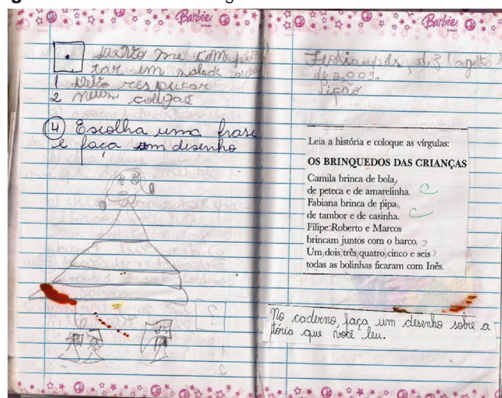 Barbie
devo me
1 devo respeitar
2 meus colegas
4 Escolha uma frase
e faça um desenho
Barbie
de 2002
Lição
Leia a história e coloque as vírgulas:
OS BRINQUEDOS DAS CRIANÇAS
Camila brinca de bola,
de peteca e de amarelinha.
Fabiana brinca de pipa,
de tambor e de casinha.
Filipe Roberto e Marcos
brincam juntos com o barco.
Um, dois, três, quatro, cinco e seis
todas as bolinhas ficaram com Inês.
No caderno, faça um desenho sobre a
tória que você leu.